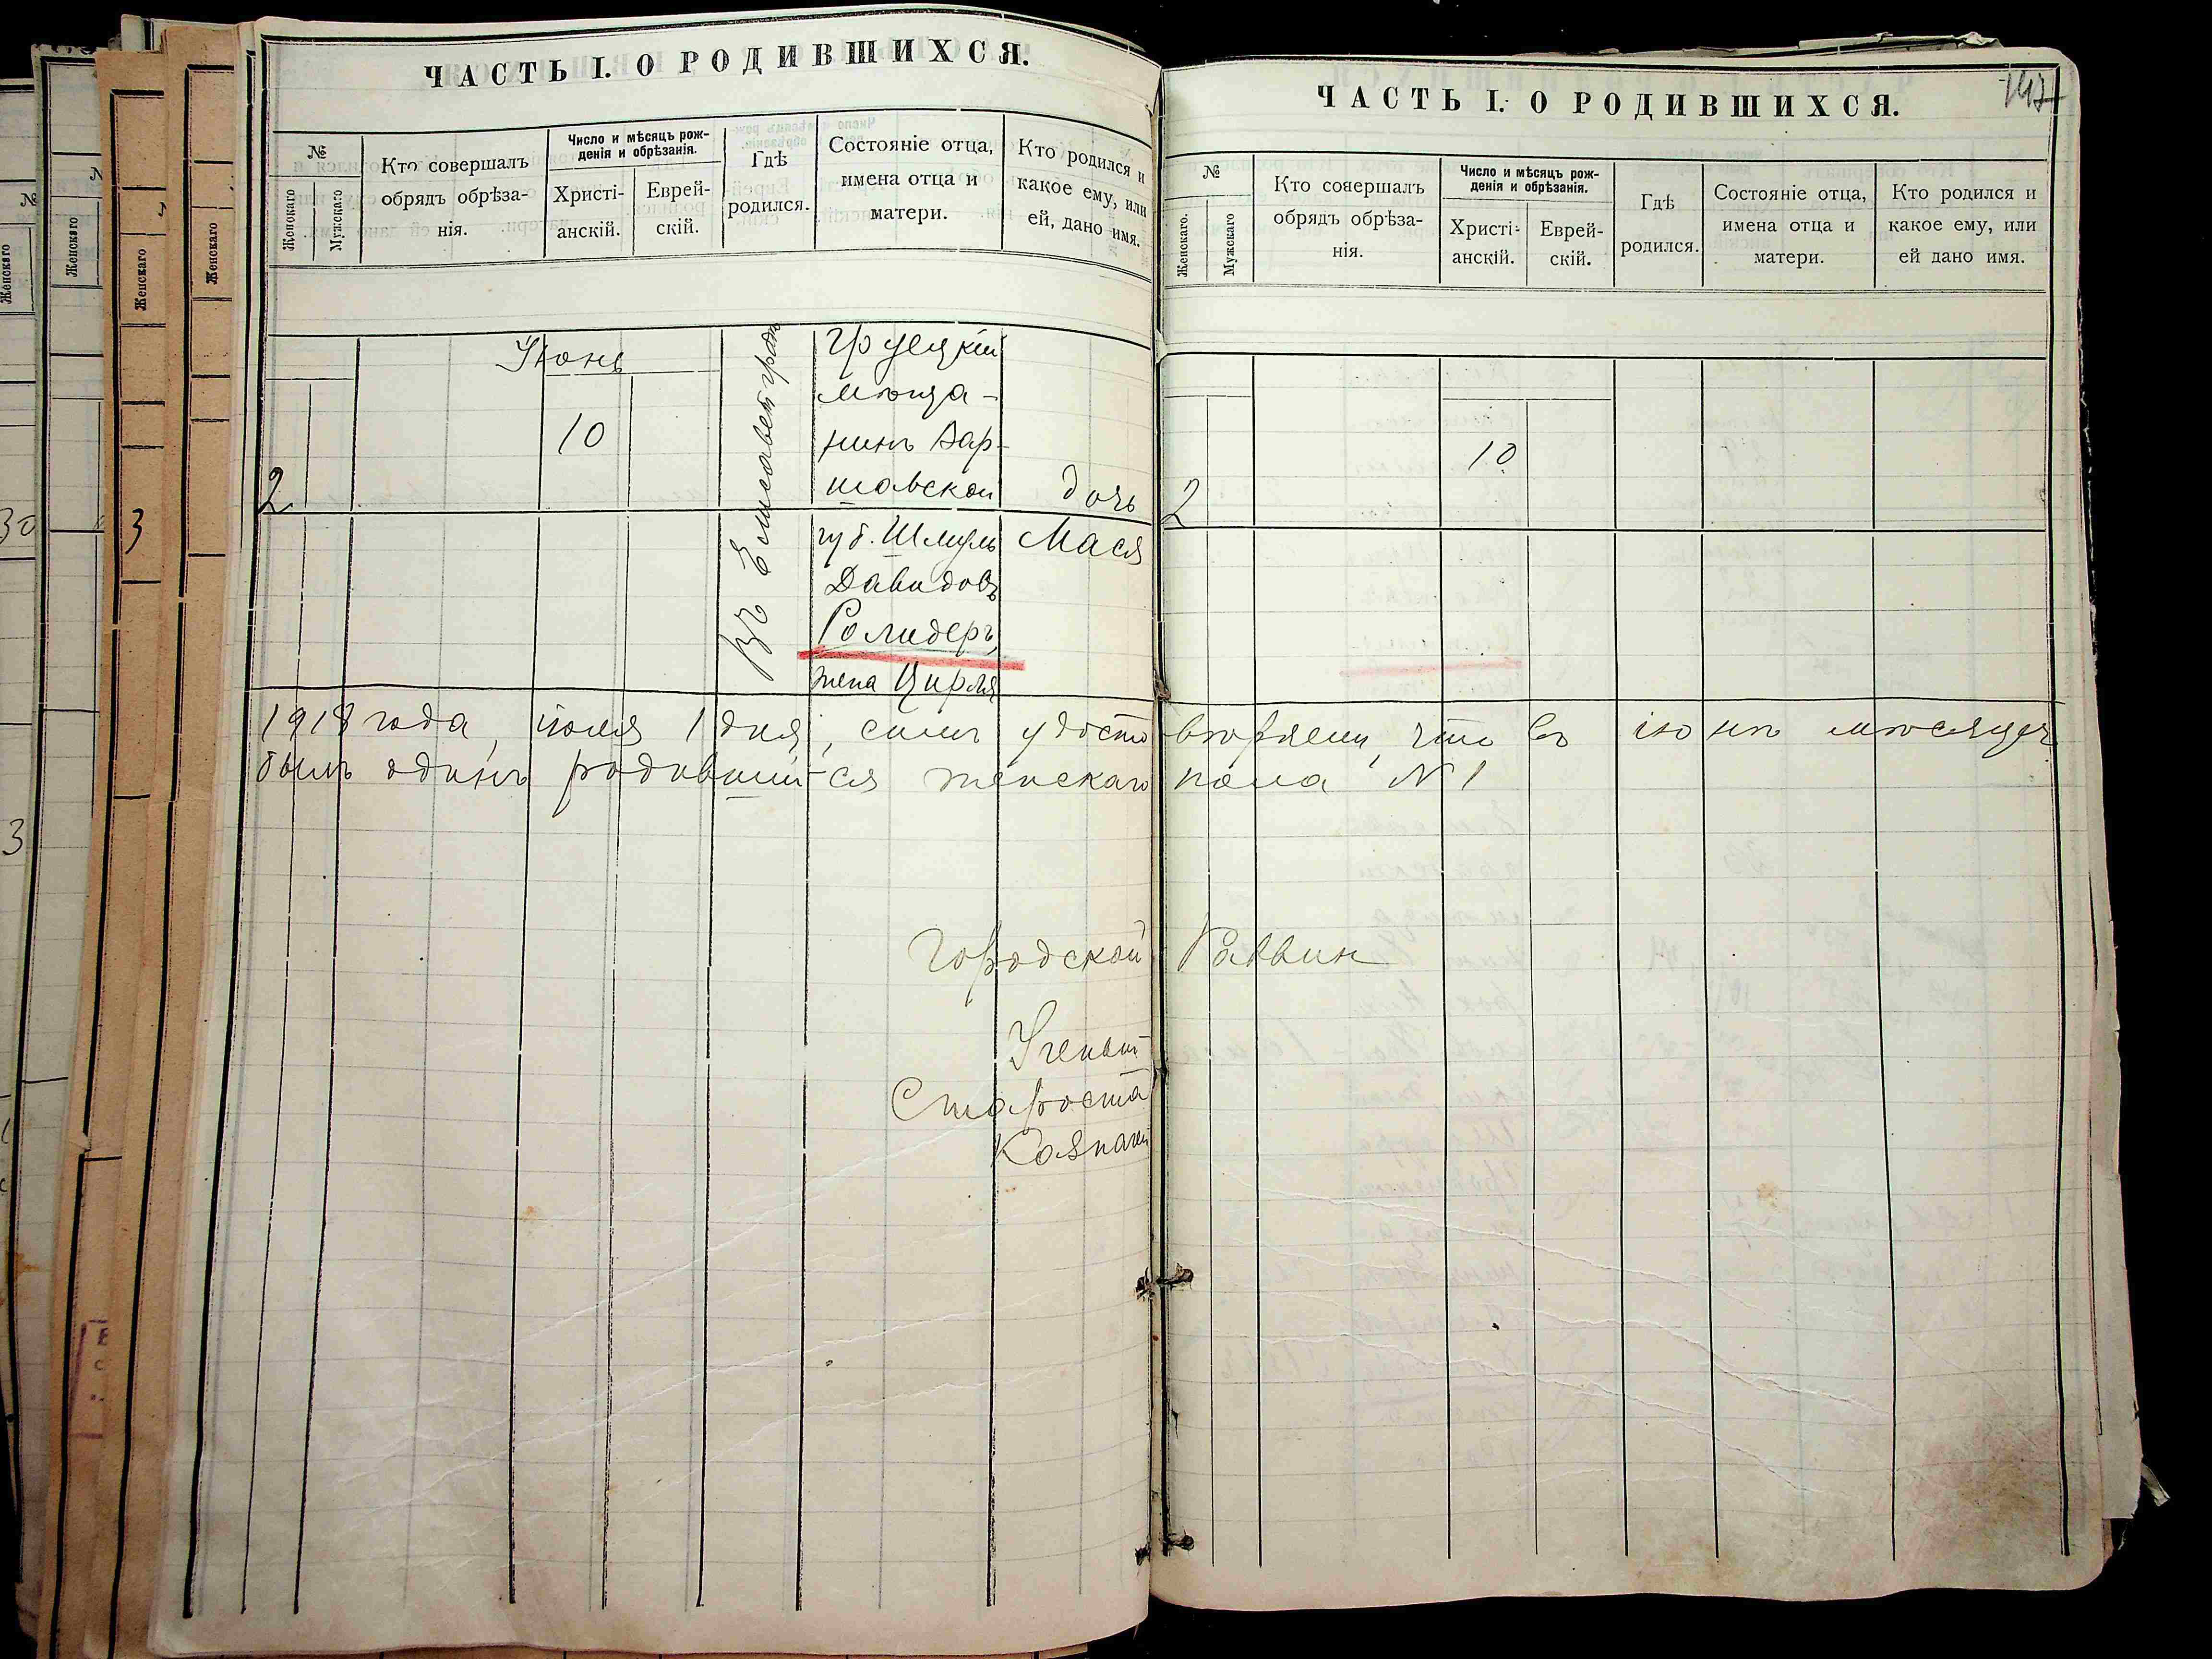 ЧАСТЬ I. О РОДИВШИХСЯ.
№
Женскаго
Мужскаго
Кто совершалъ
обрядъ обрѣза-
нія.
Число и мѣсяцъ рож-
денія и обрѣзанія.
Христі-
анскій.
Еврей-
скій.
Гдѣ
родился.
Состояніе отца,
имена отца и
матери.
Кто родился и
какое ему, или
ей, дано имя.
2
Июнь
10
Въ Елисаветградѣ
мѣща-
нинъ Вар-
шавской
губ. Шмуль
Давидовъ
Ролидеръ,
жена Цирля
дочь
Мася
1918 года, іюля 1 дня, симъ удосто
вѣряемъ, что въ іюнѣ мѣсяцѣ
былъ одинъ родившій-ся женскаго
пола № 1
Городской
Раввин
Ученый
Староста
Казначей
ЧАСТЬ I. О РОДИВШИХСЯ.
147
№
Женскаго.
Мужскаго
Кто совершалъ
обрядъ обрѣза-
нія.
Число и мѣсяцъ рож-
денія и обрѣзанія.
Христі-
анскій.
Еврей-
скій.
Гдѣ
родился.
Состояніе отца,
имена отца и
матери.
Кто родился и
какое ему, или
ей дано имя.
2
10
№
Женскаго
Женскаго
Женскаго
Женскаго
30
3
3